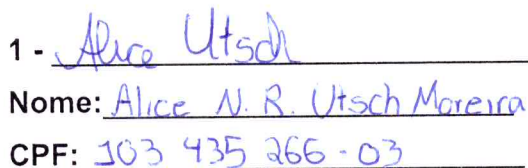 1 - Alice Utsch
Nome: Alice N. R. Utsch Moreira
CPF: 103 435 266-03